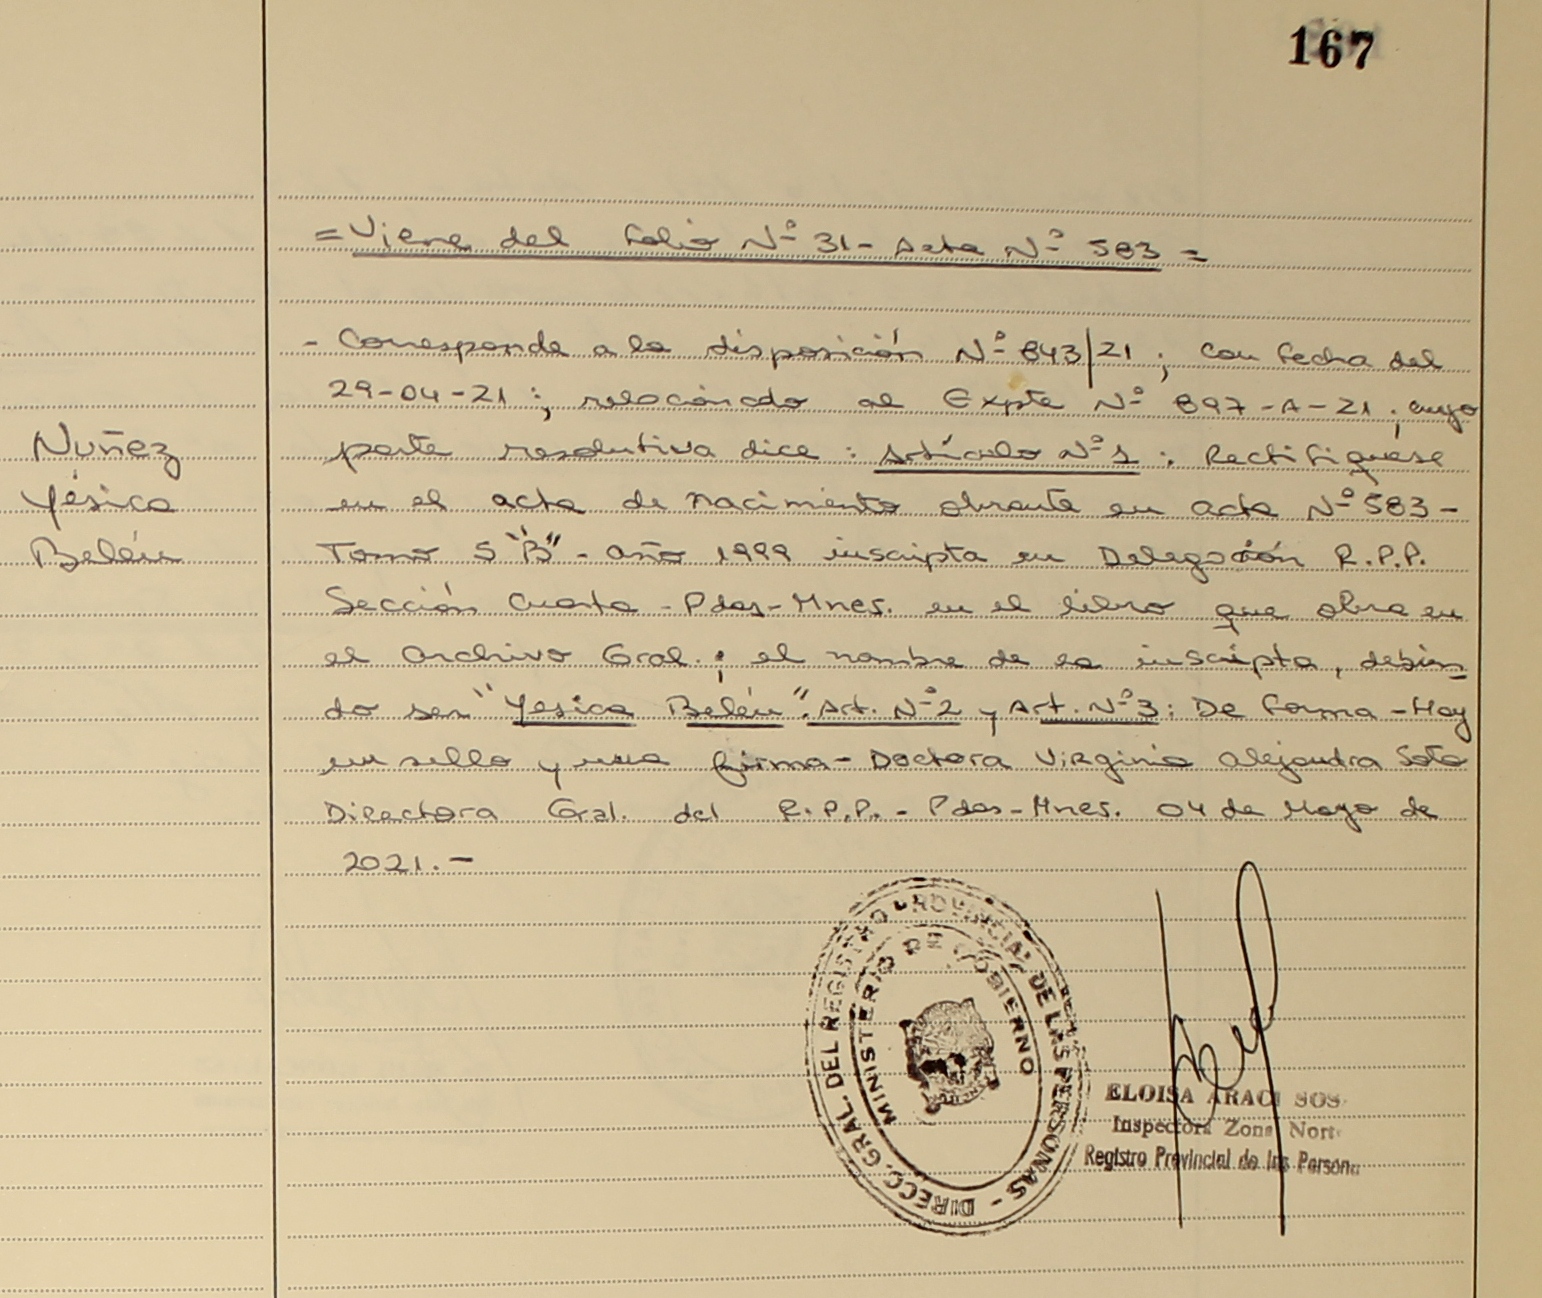 167
= Viene del folio Nº 31 - Acta Nº 583 =
- Corresponde a la disposición Nº 843/21 ; con fecha del
29-04-21 ; relacionado al Expte Nº 897-A-21 ; cuya
Nuñez
parte resolutiva dice : Artículo Nº 1 : Rectifiquese
Yésica
en el acta de nacimiento obrante en acta Nº 583 -
Belén
Tomo 5 "B" - año 1999 inscripta en Delegación R.P.P.
Sección Cuarta - Pdas - Mnes. en el libro que obra en
el Archivo Gral. ; el nombre de la inscripta, debien
do ser "Yesica Belén". Art. Nº 2 y Art. Nº 3 : De forma - Hay
un sello y una firma - Doctora Virginia Alejandra Soto
Directora Gral. del R.P.P. - Pdas - Mnes. 04 de Mayo de
2021.-
DIRECC. GRAL. DEL REGISTRO PROVINCIAL DE LAS PERSONAS -
MINISTERIO DE GOBIERNO
ELOISA ARACI SOS
Inspectora Zona Norte
Registro Provincial de las Persona